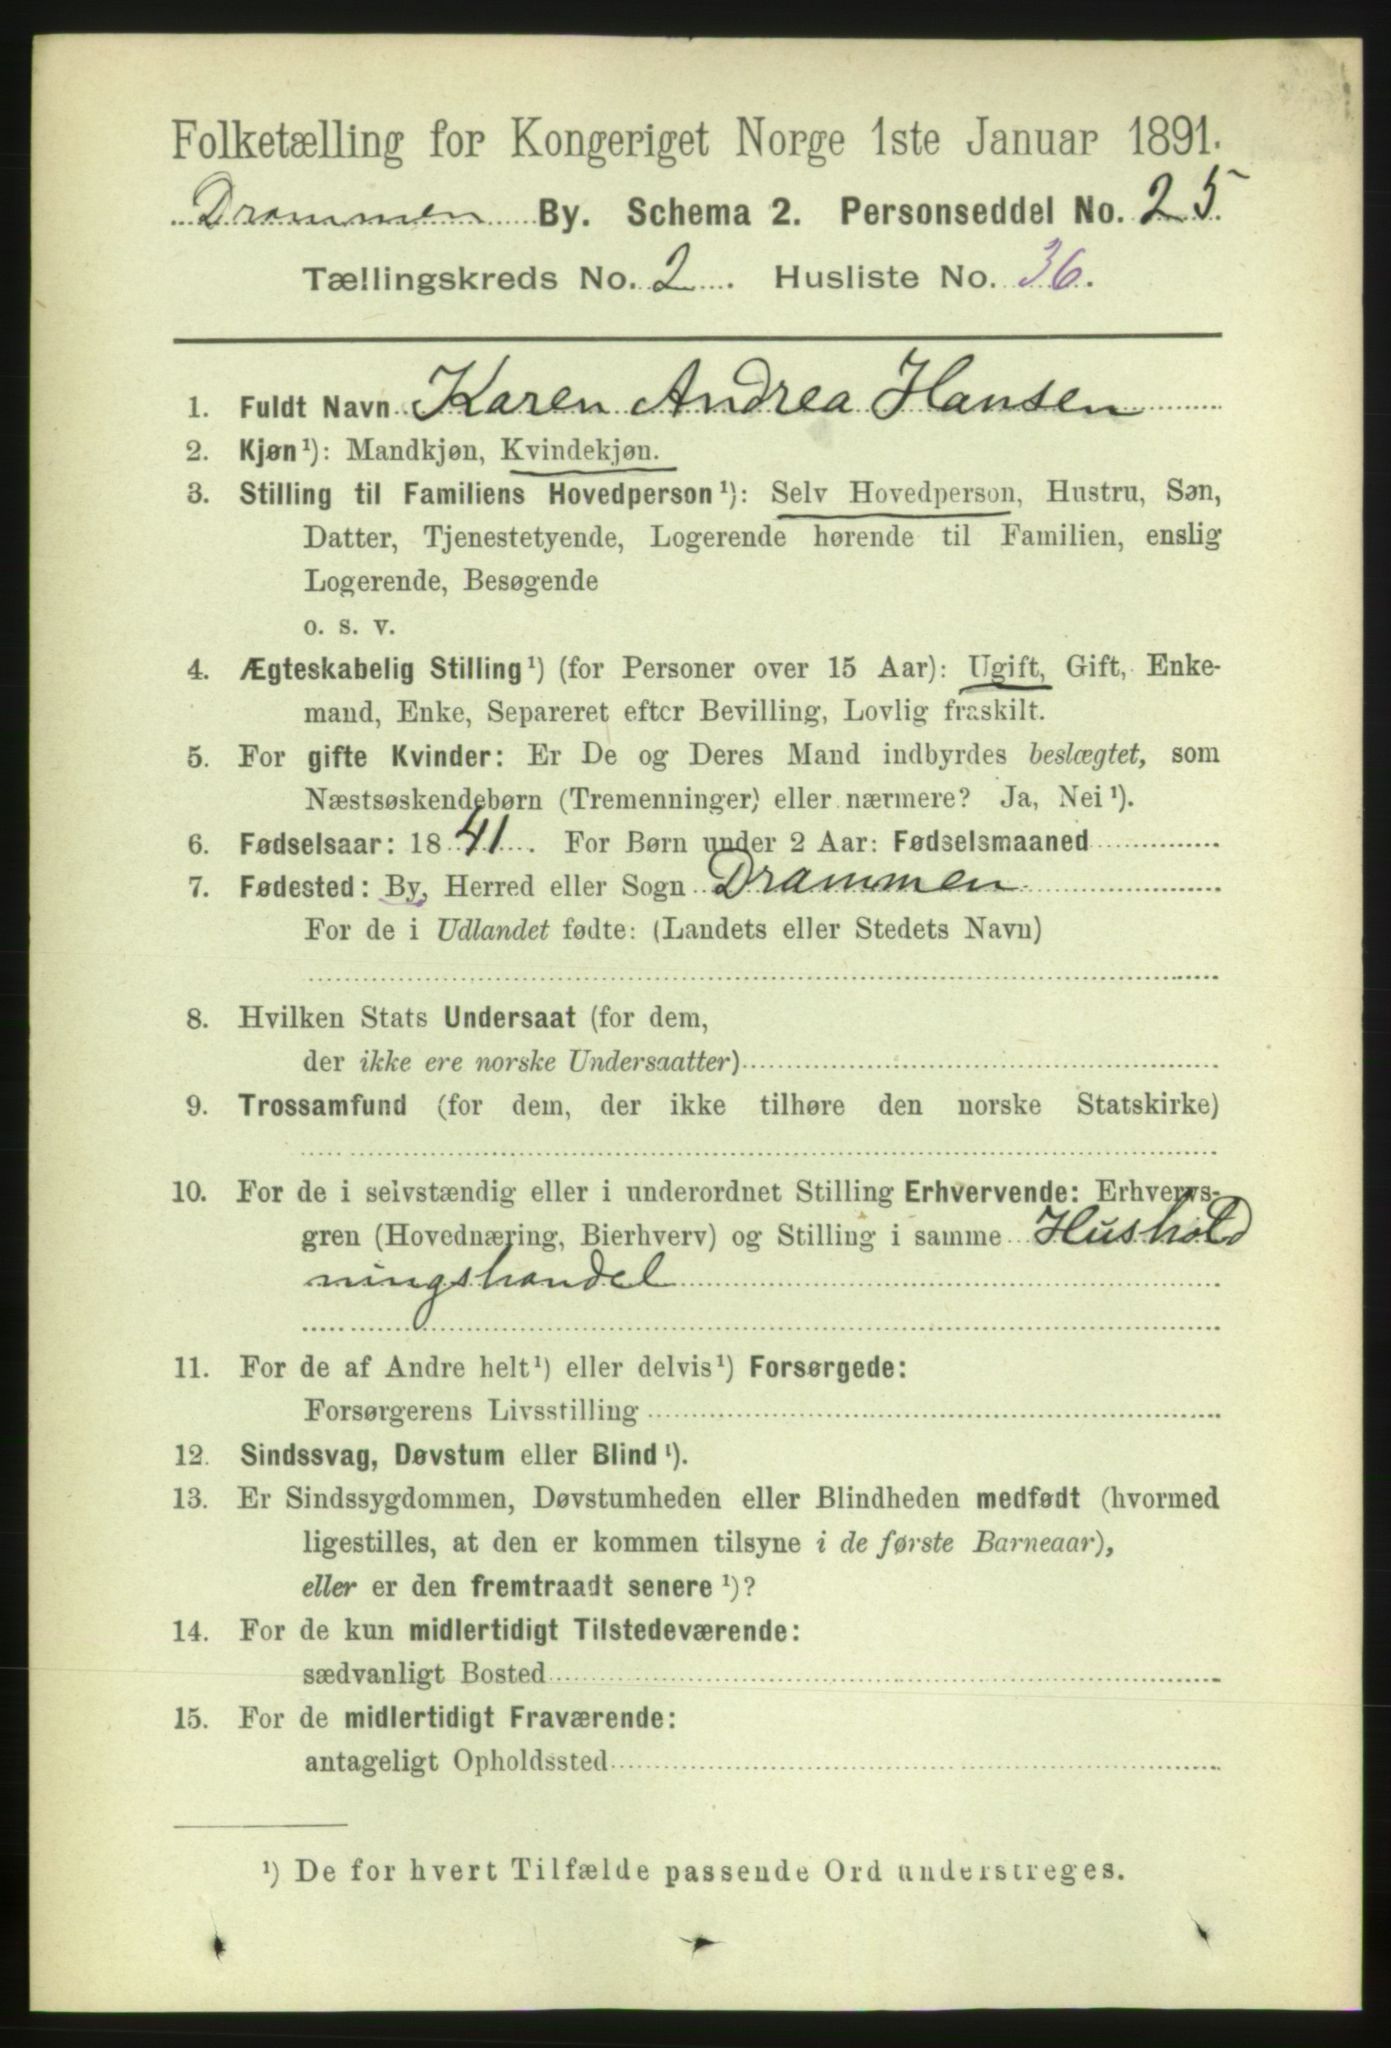 Folketælling for Kongeriget Norge 1ste Januar 1891.
Drammen By. Schema 2. Personseddel No. 25.
Tællingskreds No. 2. Husliste No. 36.
1. Fuldt Navn Karen Andrea Hansen
2. Kjøn¹): Mandkjøn, Kvindekjøn.
3. Stilling til Familiens Hovedperson¹): Selv Hovedperson, Hustru, Søn,
Datter, Tjenestetyende, Logerende hørende til Familien, enslig
Logerende, Besøgende
o. s. v.
4. Ægteskabelig Stilling¹) (for Personer over 15 Aar): Ugift, Gift, Enke-
mand, Enke, Separeret efter Bevilling, Lovlig fraskilt.
5. For gifte Kvinder: Er De og Deres Mand indbyrdes beslægtet, som
Næstsøskendebørn (Tremenninger) eller nærmere? Ja, Nei¹).
6. Fødselsaar: 1841. For Børn under 2 Aar: Fødselsmaaned
7. Fødested: By, Herred eller Sogn Drammen
For de i Udlandet fødte: (Landets eller Stedets Navn)
8. Hvilken Stats Undersaat (for dem,
der ikke ere norske Undersaatter)
9. Trossamfund (for dem, der ikke tilhøre den norske Statskirke)
10. For de i selvstændig eller i underordnet Stilling Erhvervende: Erhvervs-
gren (Hovednæring, Bierhverv) og Stilling i samme Hushold
ningshandel
11. For de af Andre helt¹) eller delvis¹) Forsørgede:
Forsørgerens Livsstilling
12. Sindssvag, Døvstum eller Blind¹).
13. Er Sindssygdommen, Døvstumheden eller Blindheden medfødt (hvormed
ligestilles, at den er kommen tilsyne i de første Barneaar),
eller er den fremtraadt senere¹)?
14. For de kun midlertidigt Tilstedeværende:
sædvanligt Bosted
15. For de midlertidigt Fraværende:
antageligt Opholdssted
¹) De for hvert Tilfælde passende Ord understreges.